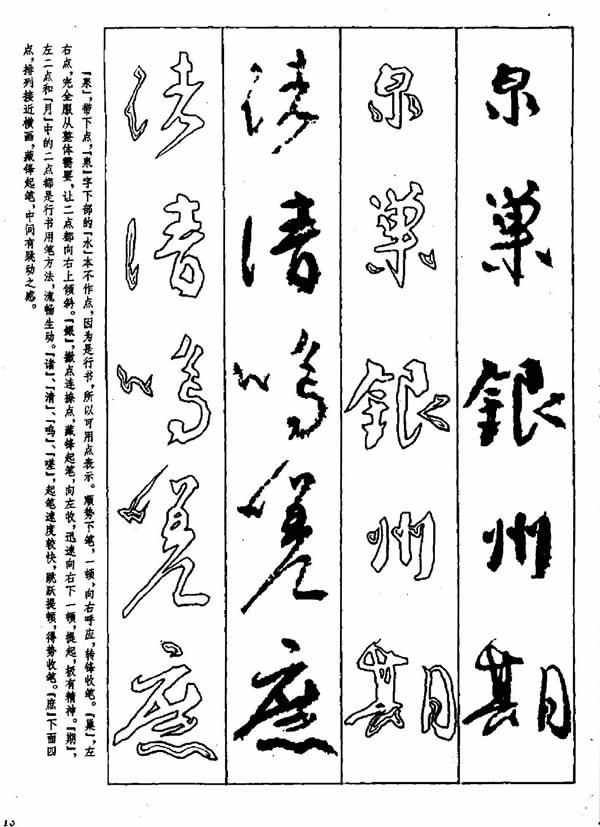 泉巢銀州期
泉巢銀州期
诸清鸣嗟庶
诸清鸣嗟庶
「泉」,带下点,「泉」字下部的「水」本不作点,因为是行书,所以可用点表示。顺势下笔,一顿,向右呼应,转锋收笔。「巢」,左
右点,完全服从整体需要,让二点都向右上倾斜。「銀」,撇点连捺点,藏锋起笔,向左收,迅速向右下一顿,提起,极有精神。「期」,
左二点和「月」中的二点都是行书用笔方法,流畅生动。「诸」、「清」、「鸣」、「嗟」,起笔速度较快,跳跃提顿,得势收笔。「庶」下面四
点,排列接近横画,藏锋起笔,中间有跳动之感。